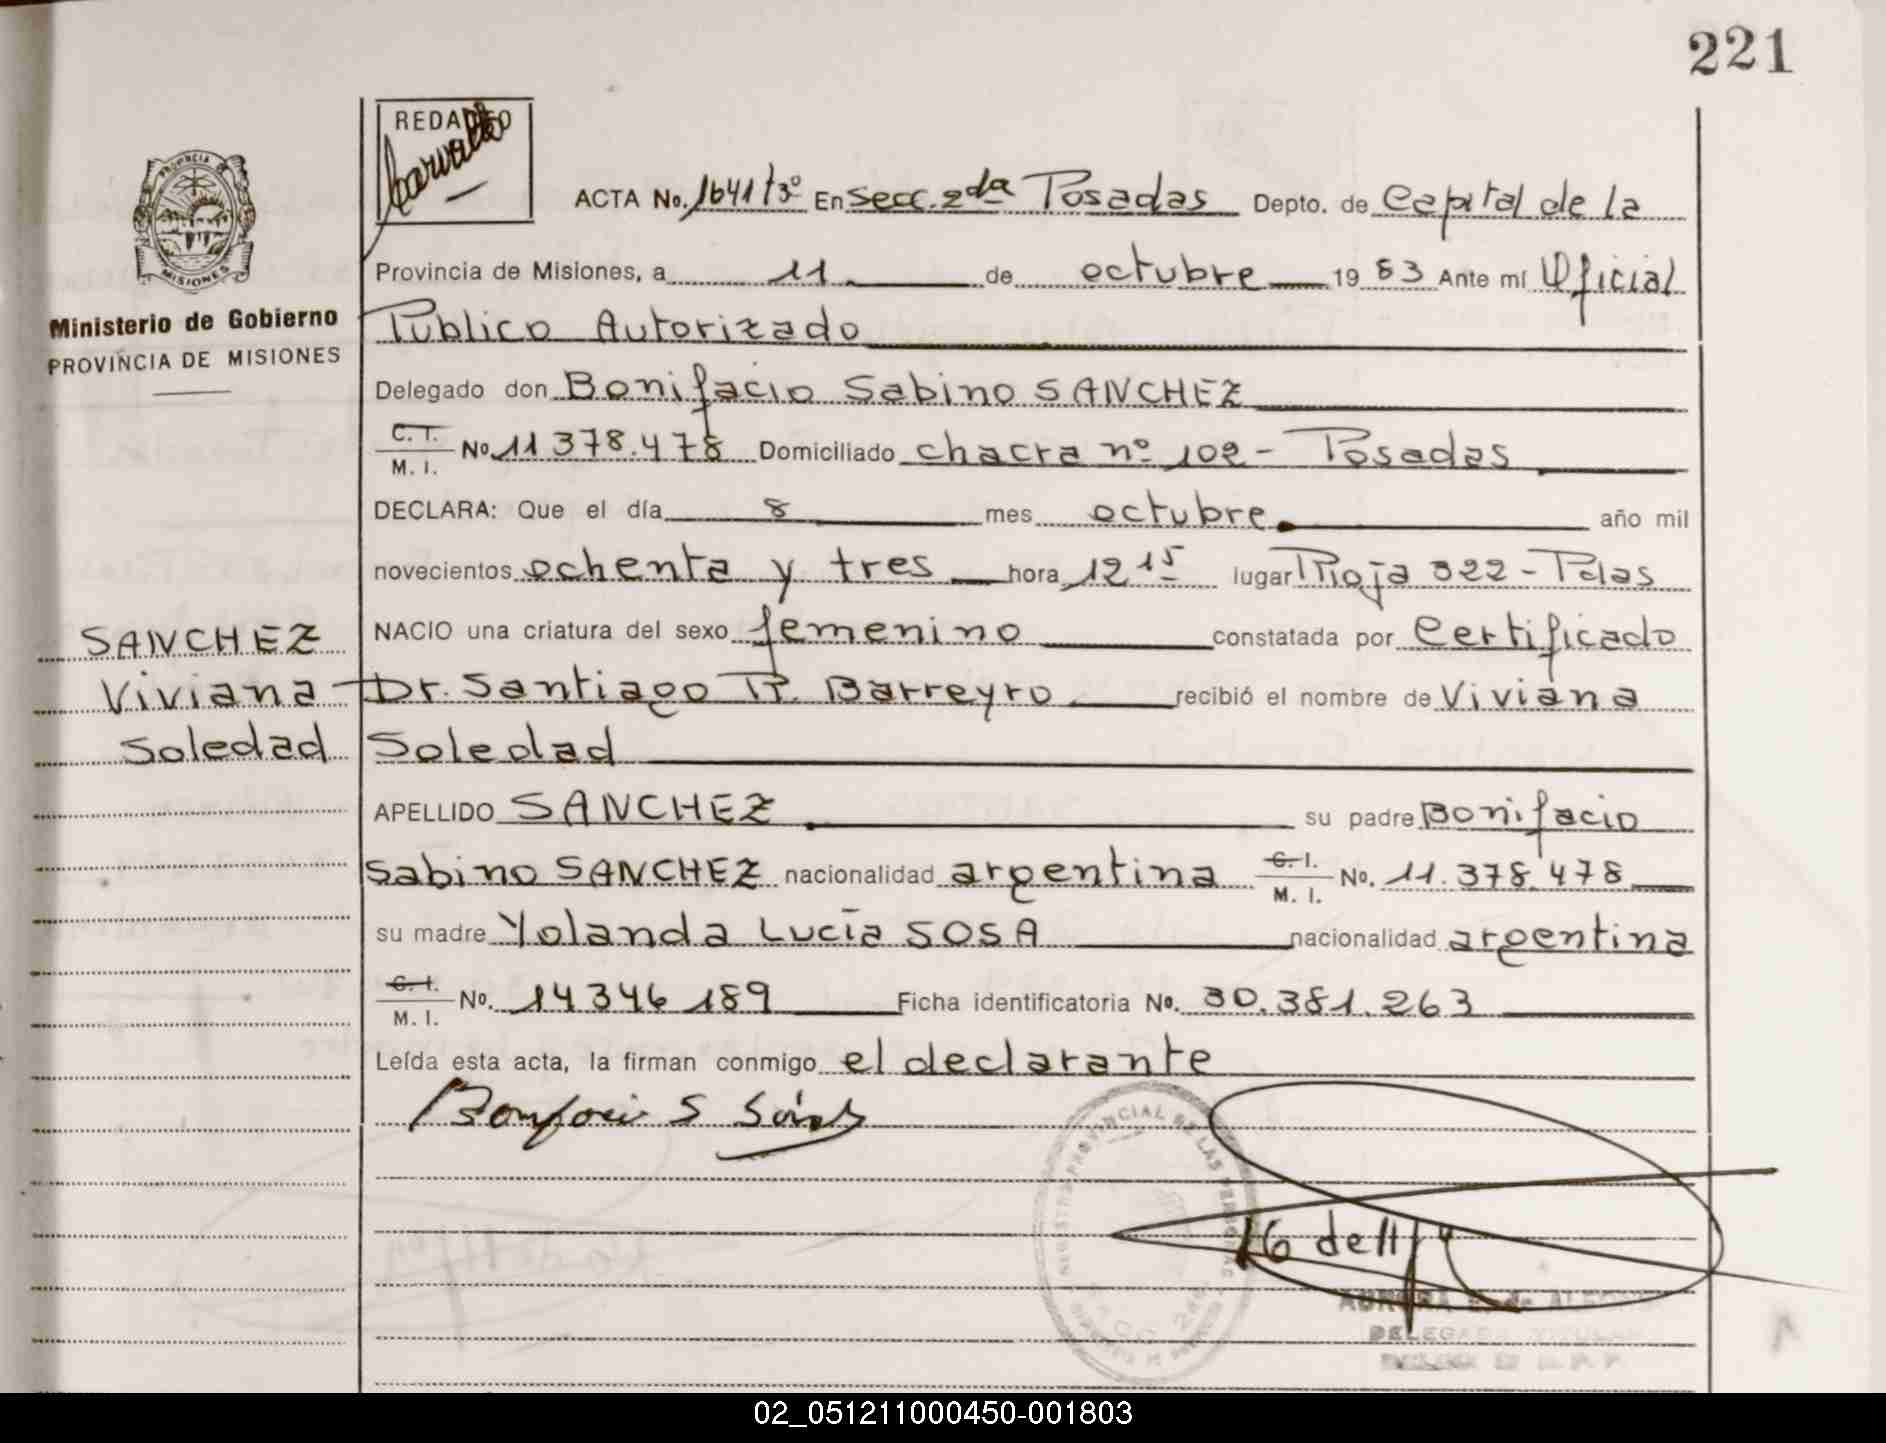 221
REDACTO
Carvallo
ACTA No. 1641 t3º En Secc. 2da Posadas Depto. de Capital de la
Provincia de Misiones, a 11 de octubre 1983 Ante mí Oficial
Público Autorizado
Delegado don Bonifacio Sabino SANCHEZ
C. I. M. I. No 11 378.478 Domiciliado chacra nº 102 - Posadas
DECLARA: Que el día 8 mes octubre año mil
novecientos ochenta y tres hora 12 15 lugar Rioja 322 - Pdas
NACIO una criatura del sexo femenino constatada por Certificado
Dr. Santiago R. Barreyro recibió el nombre de Viviana
Soledad
APELLIDO SANCHEZ su padre Bonifacio
Sabino SANCHEZ nacionalidad argentina C. I. M. I. No. 11.378.478
su madre Yolanda Lucía SOSA nacionalidad argentina
C. I. M. I. No. 14346189 Ficha identificatoria No. 30.381.263
Leída esta acta, la firman conmigo el declarante
Bonifacio S
PROVINCIA
MISIONES
Ministerio de Gobierno
PROVINCIA DE MISIONES
SANCHEZ
Viviana
Soledad
REGISTRO PROVINCIAL DE LAS PERSONAS
AURORA de
DELEGADA TITULAR
02_051211000450-001803